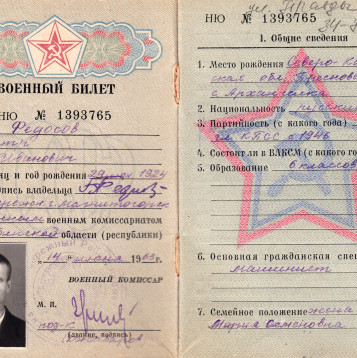 ВОЕННЫЙ БИЛЕТ
НЮ № 1393765
Федосов
Иванович
и год рождения 1924
пись владельца
г. Магнитогорск
военным комиссариатом
области (республики)
14 1963
ВОЕННЫЙ КОМИССАР
М. П.
(звание, подпись)
ул. Правды
НЮ № 1393765
I. Общие сведения
1. Место рождения Северо-Ка
ская обл.
с. Архангелка
2. Национальность русский
3. Партийность (с какого года)
чл. КПСС с 1946
4. Состоит ли в ВЛКСМ (с какого года)
5. Образование 6 классов
6. Основная гражданская спец
машинист
7. Семейное положение жена
Мария Семеновна